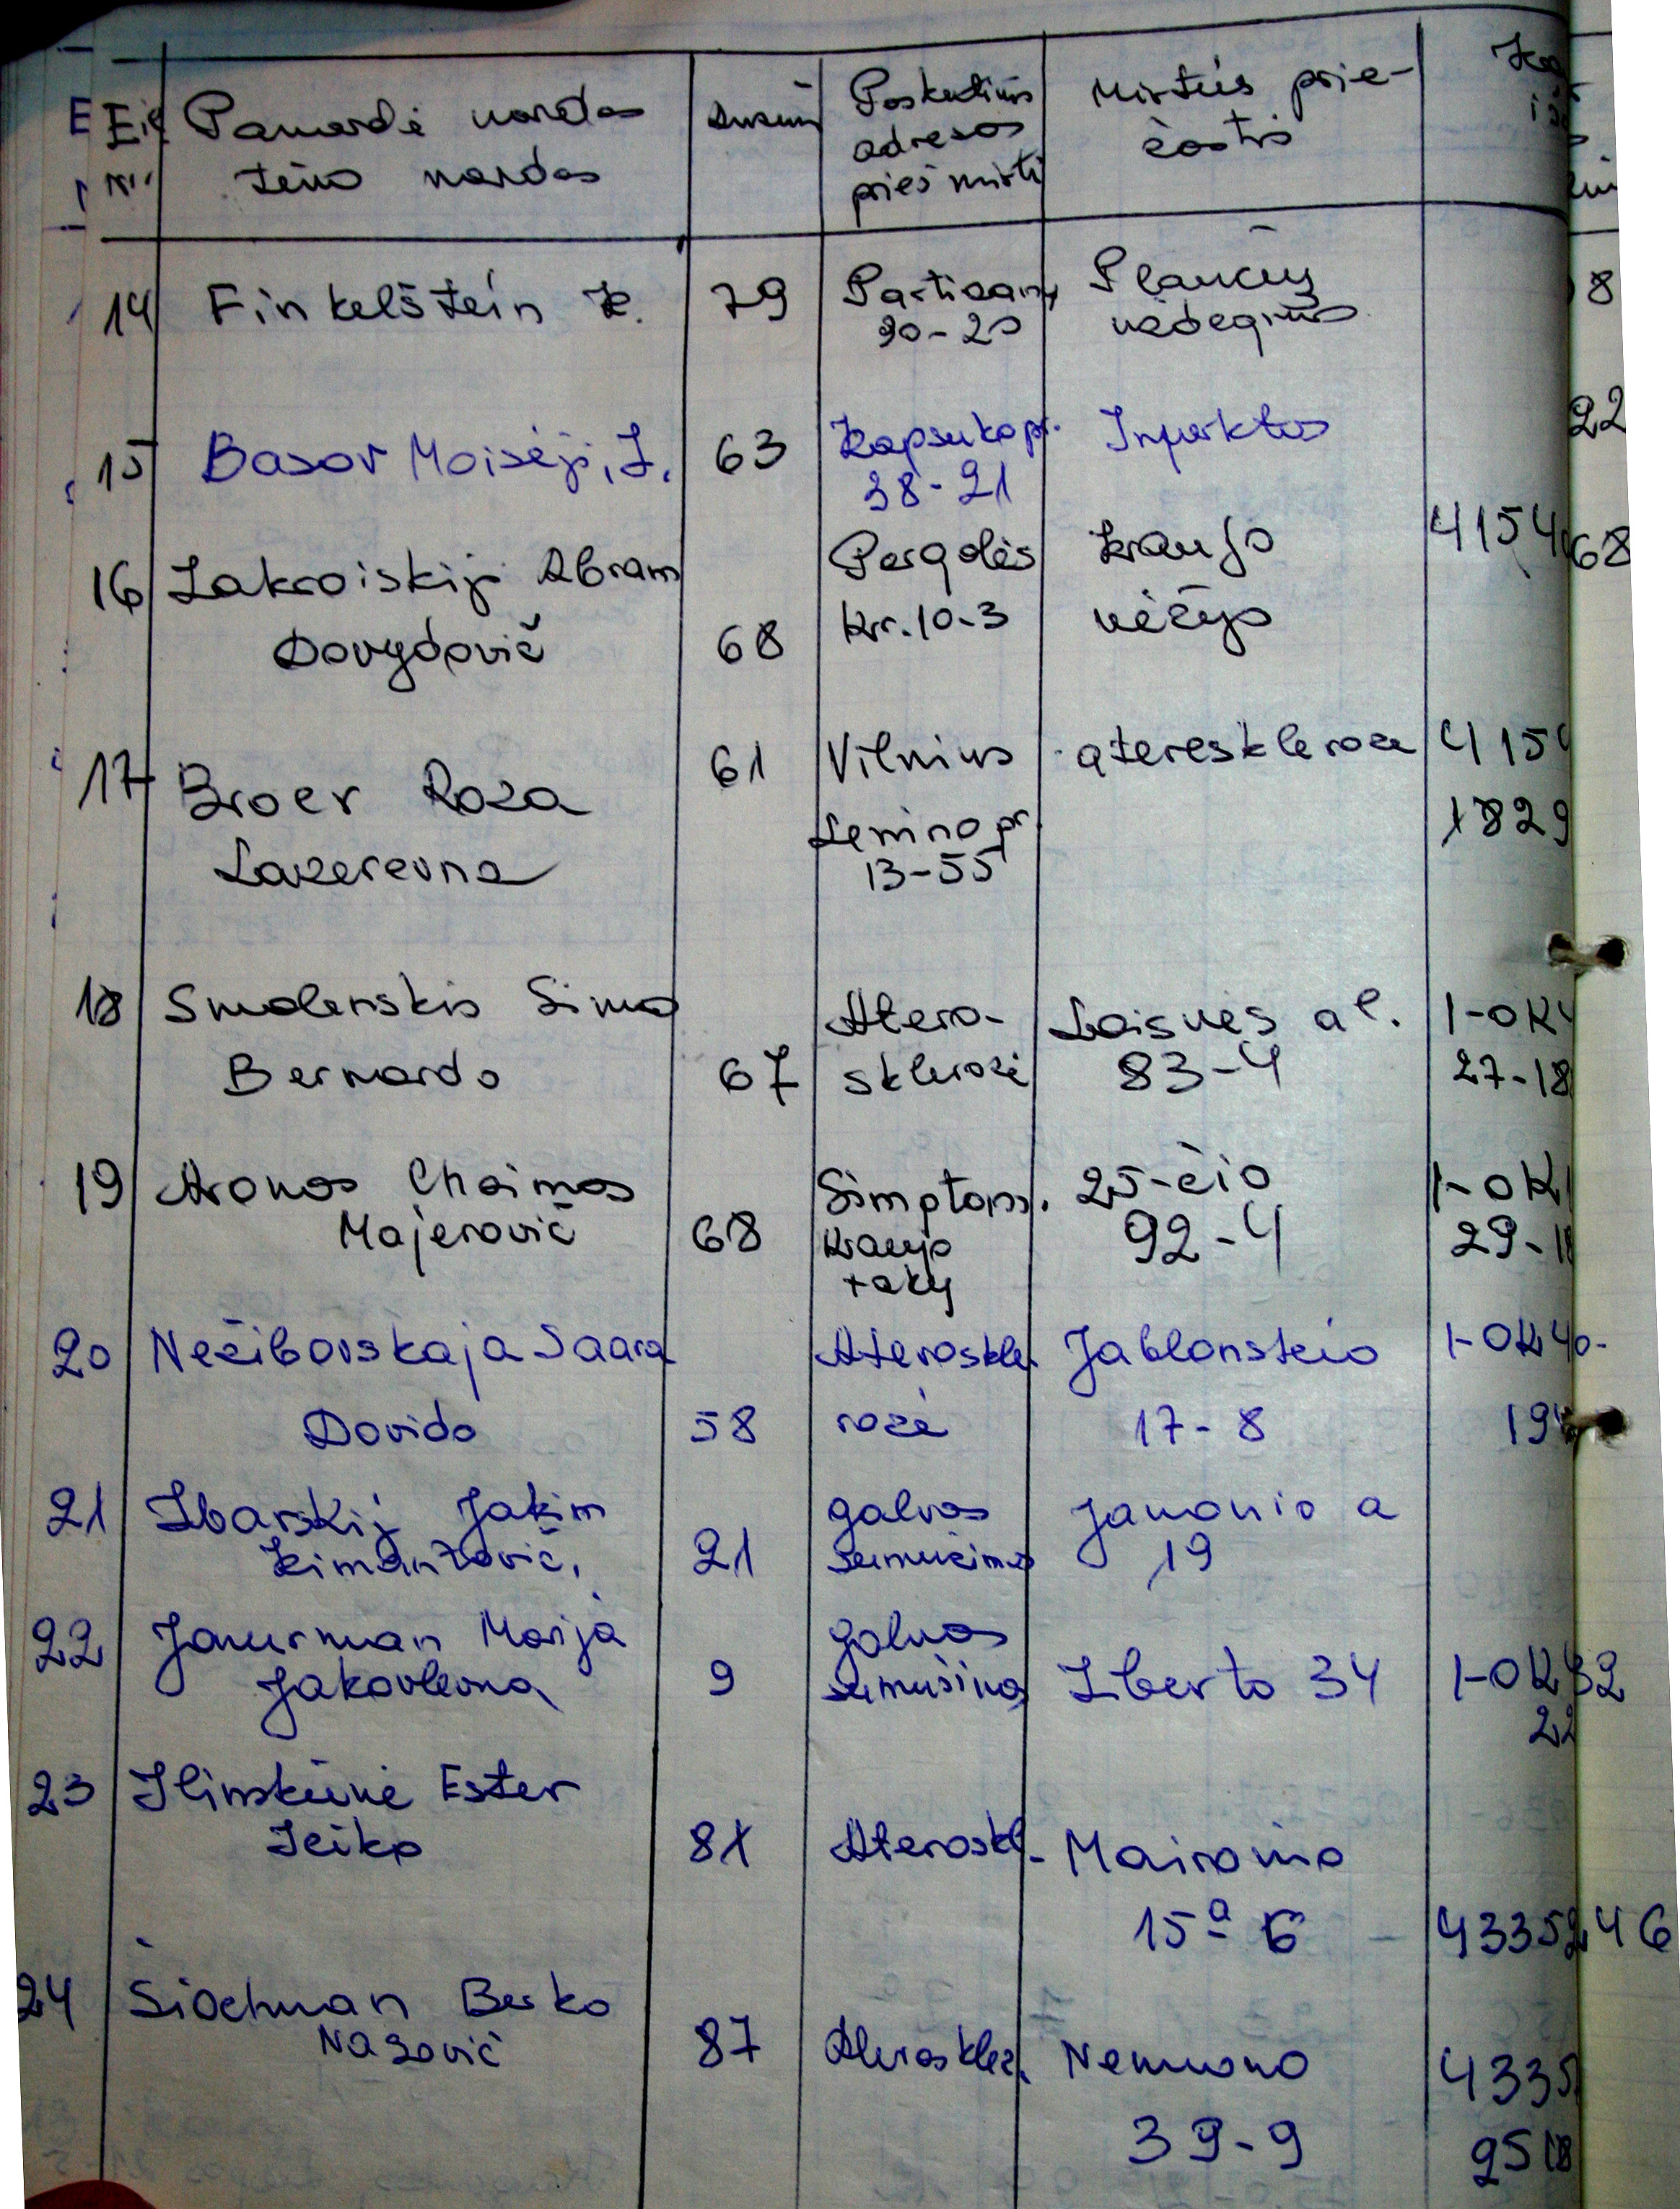 Eil Pavardė vardas Amžius Paskutinis Mirties prie-
Nr. tėvo vardas adresas žastis
prieš mirtį
14 Finkelštein K. 79 Partizanų Plaučių
90-20 uždegimas
15 Basov Moisėj, I. 63 Kapsuko pr. Infarktas
38-21
16 Zakroiskij Abram Pergalės kraujo 4154
Dovydovič 68 kr. 10-3 vėžys
17 Broer Roza 61 Vilnius atereskleroze 415
Lazerevna Lenino pr. 1829
13-55
18 Smolenskis Simo Atero- Laisvės al. 1-OK
Bernardo 67 sklerozė 83-4 27-18
19 Aronas Chaimas Simptom. 25-čio 1-OK
Majerovič 68 kraujo 92-4 29-1
takų
20 Nežibovskaja Saara Ateroskle Jablonskio 1-OK40-
Dovido 58 rozė 17-8 19
21 Zbarskij Jakim galvos Janonio a
21 sumušimas 19
22 Marija galvos
Jakovlevna 9 sumušimas Zberto 34 1-OK
22
23 Ilinskienė Ester
Jeiko 81 Ateroskl- Maironio
15a 6 4335
24 Šiochman Berko
Nazovič 87 Aterosklez. Nemuno 4335
39-9 2518
8
22
68
32
46